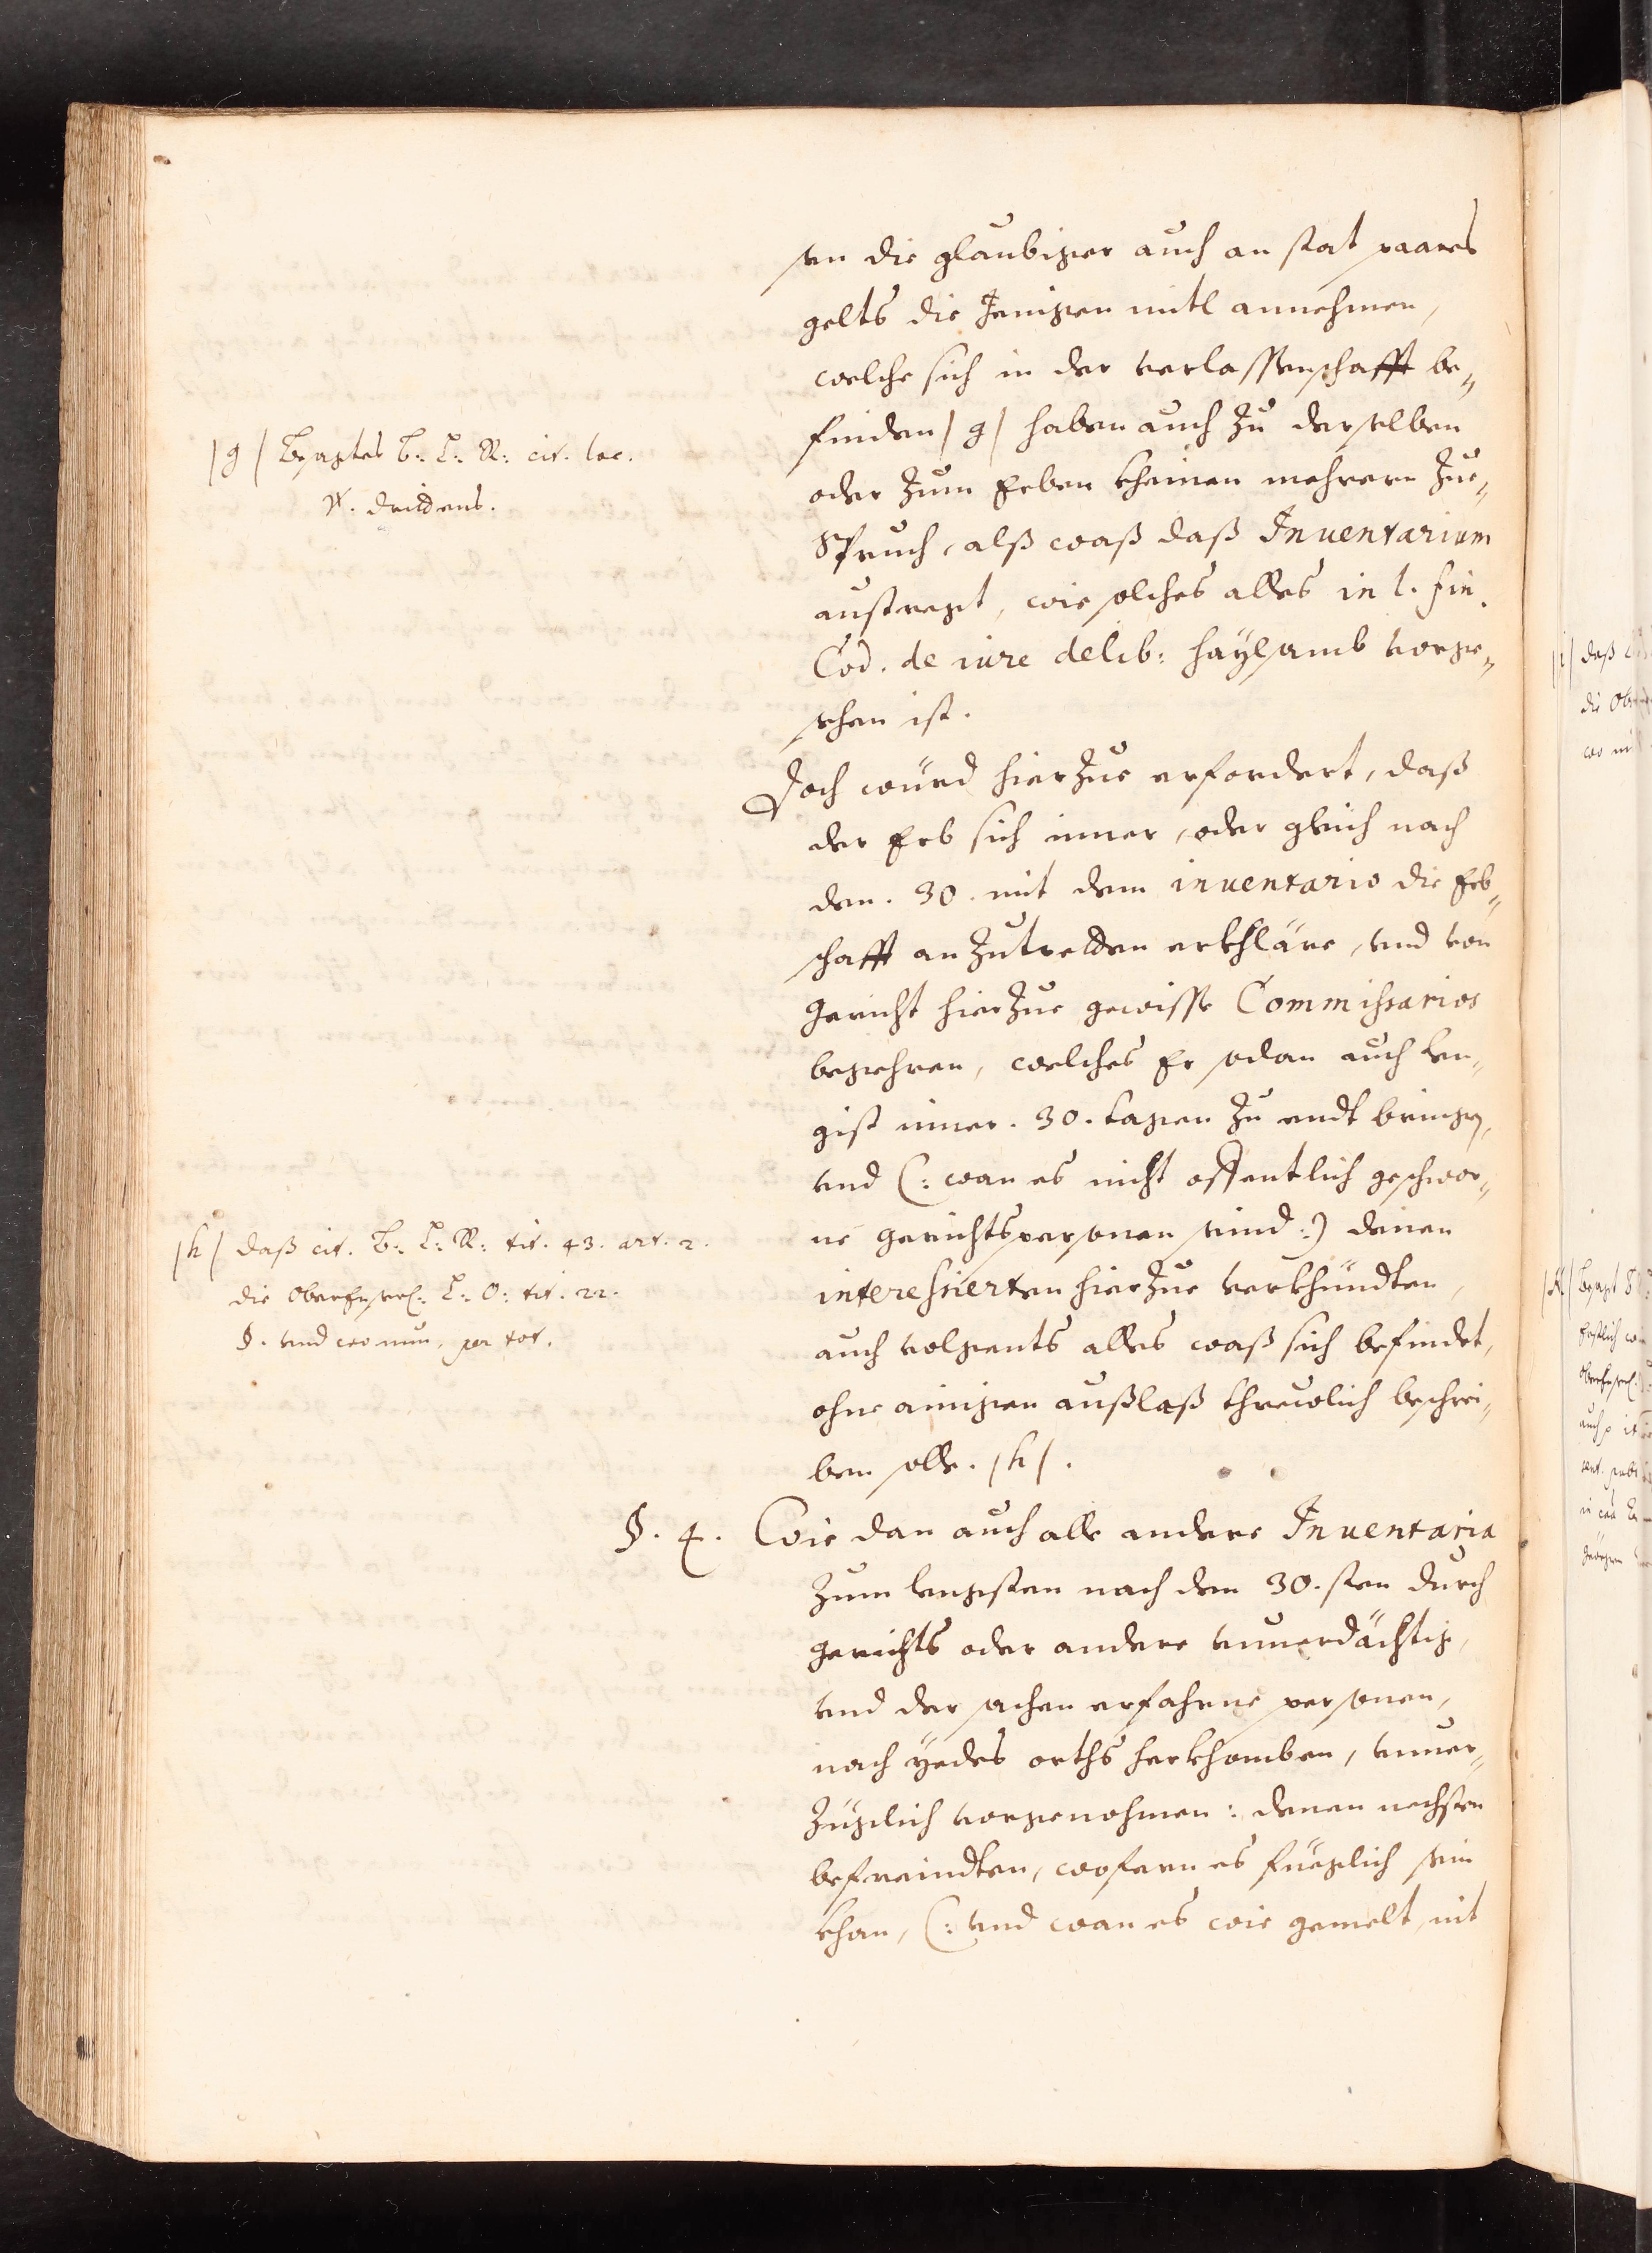 sen die glaubiger auch an stat paares
gelts die Jenigen mitl annehmen,
welche sich in der verlassenschafft be„
finden /g/ haben auch Zu derselben
oder Zum Erben kheinen mehrern Zue„
Spruch, alß waß daß Inuentarium
austregt, wie solches alles in l. fin.
Cod. de iure delib: haÿlsamb vorge„
sehen ist.
Doch würd hierZue erfordert, daß
der Erb sich inner, oder gleich nach
den . 30. mit dem inuentario die Erb„
schafft anZutretten erkhläre, vnd von
Gericht hierZue gewisse Commissarios
begehren, welches Er sodan auch len„
gist inner . 30. tagen Zu endt bringen,
vnd (: wan es nicht offentlich geschwor„
ne gerichtspersonen seind :) denen
interessierten hierZue verkhündten,
auch volgents alles waß sich befindet,
ohne ainigen außlaß threwlich beschrei„
ben solle. /h/.
§. 4. Wie dan auch alle andere Inuentaria
Zum lengsten nach dem 30.sten durch
gerichts oder andere vnuerdächtig,
vnd der sachen erfahrne personen,
nach ÿedes orths herkhomben, vnuer„
Züglich vorgenohmen: denen nechsten
befreindten, wofern es füeglich sein
khan, (: vnd wan es wie gemelt, nit
/g/ Besagtes B: L: R: cit. loc.
V. drittens.
/h/ daß cit. B: L: R: tit. 43. art. 2.
die OberEnserl: L: O: tit. 22.
§. vnd wo nun, per tot.